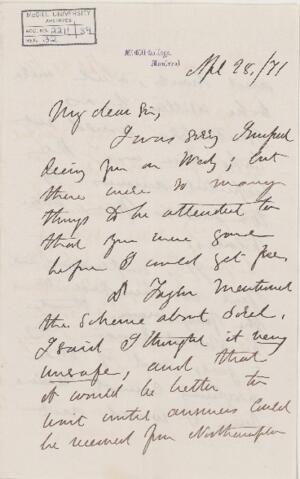 McGILL UNIVERSITY
ARCHIVES
ACC. NO. 2211/39
REF. 32
McGill College,
Montreal
Apl 28,/71
My dear Sir,
I was sorry I missed
seeing you on Wedy; but
there were so many
things to be attended to
that you were gone
before I could get free.
Dr Taylor mentioned
the scheme about Sorel.
I said I thought it very
unsafe, and that
it would be better to
wait until answers could
be received from Northampton